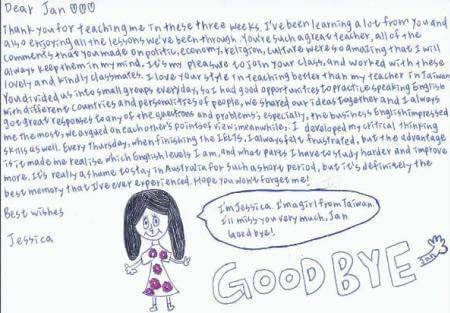 Dear Jan ♡♡♡
Thank you for teaching me in these three weeks. I've been learning a lot from you and
also enjoying all the lessons we've been through. You're such a great teacher, all of the
comments that you made on politic, economy, religion, culture were so amazing that I will
always keep them in my mind. It's my pleasure to join your class, and worked with these
lovely and kindly classmates. I love your style in teaching better than my teacher in Taiwan.
You divided us into small groups everyday, so I had good opportunities to practice speaking English
with different countries and personalities of people, we shared our ideas together and I always
got great responses to any of the questions and problems, especially, the business English impressed
me the most, we argued on each other's points of view; meanwhile, I developed my critical thinking
skills as well. Every Thursday, when finishing the IELTS, I always felt frustrated, but the advantage
is it made me realise which English levels I am, and what parts I have to study harder and improve
more. It's really a shame to stay in Australia for such a short period, but it's definitely the
best memory that I've ever experienced. Hope you won't forget me!
Best wishes
Jessica
I'm Jessica. I'm a girl from Taiwan.
I'll miss you very much, Jan
Good bye!
GOOD BYE
Jan